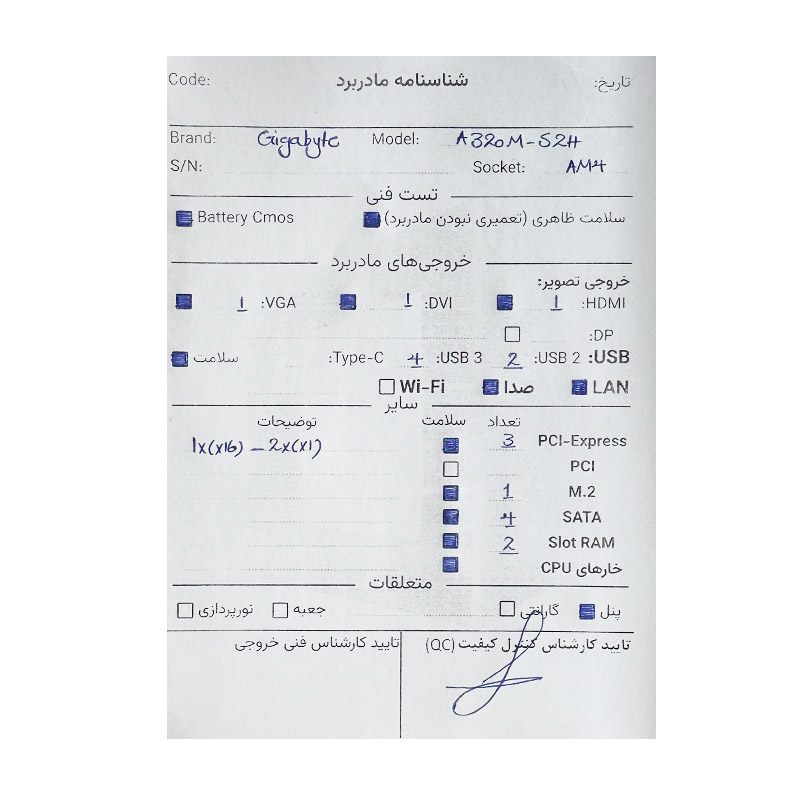 Code: شناسنامه مادربرد تاریخ:
Brand: Gigabyte Model: A320M-S2H
S/N: Socket: AM4
تست فنی
سلامت ظاهری (تعمیری نبودن مادربرد) Battery Cmos
خروجی‌های مادربرد
خروجی تصویر:
HDMI: 1 DVI: 1 VGA: 1
DP:
USB: USB 2: 2 USB 3: 4 Type-C: سلامت
LAN صدا Wi-Fi
سایر
تعداد سلامت توضیحات
PCI-Express 3 1x(x16) - 2x(x1)
PCI
M.2 1
SATA 4
Slot RAM 2
خارهای CPU
متعلقات
پنل گارانتی جعبه نورپردازی
تایید کارشناس کنترل کیفیت (QC) تایید کارشناس فنی خروجی